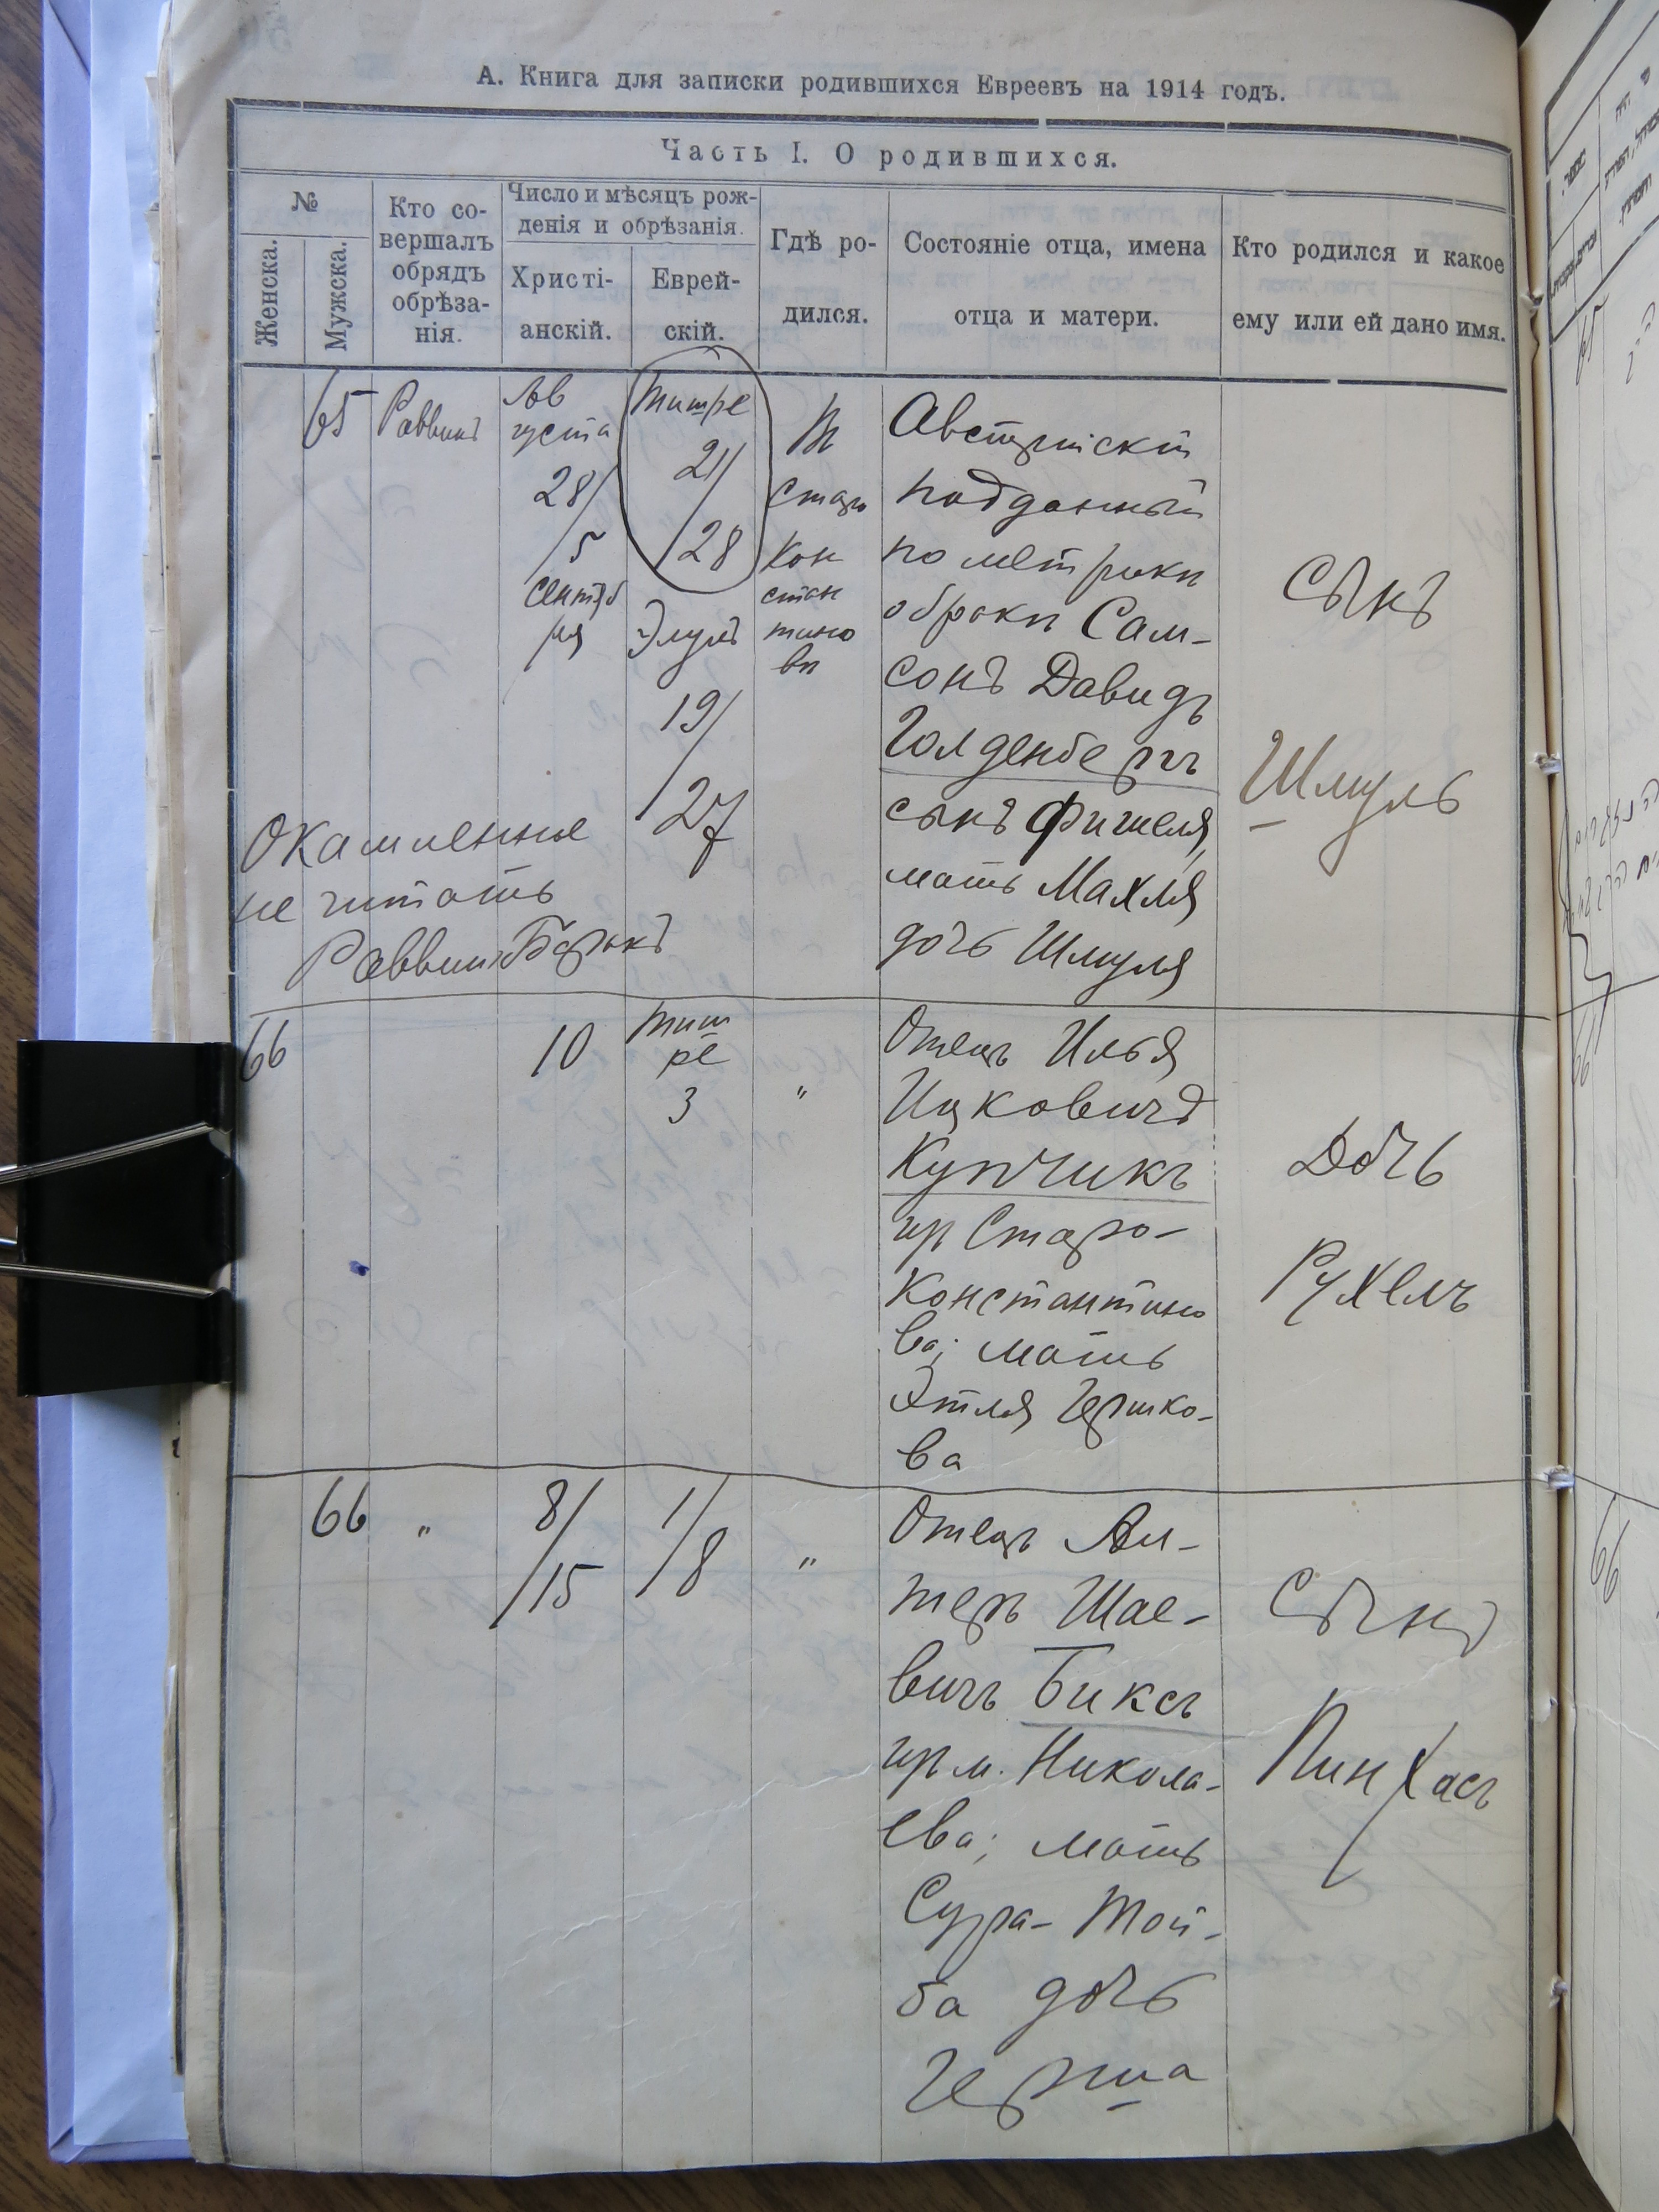 А. Книга для записки родившихся Евреевъ на 1914 годъ.
Часть I. О родившихся.
№
Женска.
Мужска.
Кто со-
вершалъ
обрядъ
обрѣза-
нія.
Число и мѣсяцъ рож-
денія и обрѣзанія.
Христі-
анскій.
Еврей-
скій.
Гдѣ ро-
дился.
Состояніе отца, имена
отца и матери.
Кто родился и какое
ему или ей дано имя.
65
Раввинъ
Ав
густа
28/
/5
сентяб
ря
Тишре
21/
/28
Элулъ
19/
27
Старо
Кон
стан
тино
вѣ
Австрійскій
подданный
по метрики
о браки Сам-
сонъ Давидъ
Голденбергъ
сынъ Фишеля,
мать Махля
дочь Шмуля
Сынъ
Шмуль
Окаймленные
не читать
Раввинъ
66
10
Тиш
ре
3
"
Отецъ Илья
Ицковичъ
Купчикъ
гр Старо-
Константино
ва; мать
Этля Гершко-
ва
Дочь
Рухель
66
"
8/
/15
1/
/8
"
Отецъ Ал-
теръ Шае-
вичъ Биксъ
гр м. Никола-
ева; мать
Сура-Той-
ба дочь
Герша
Сынъ
Пинхасъ
65
66
66